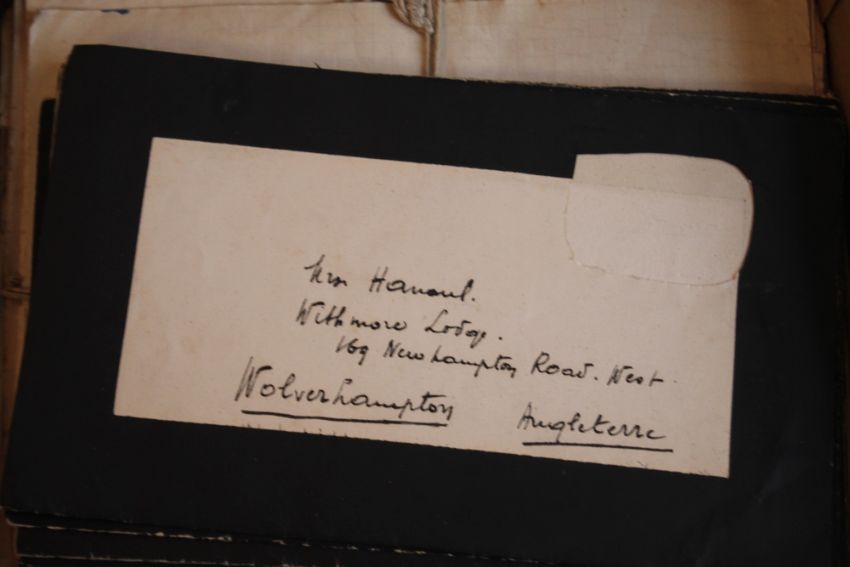 Mrs Hanoul.
Withmore Lodge.
169 Newhampton Road. West.
Wolverhampton Angleterre